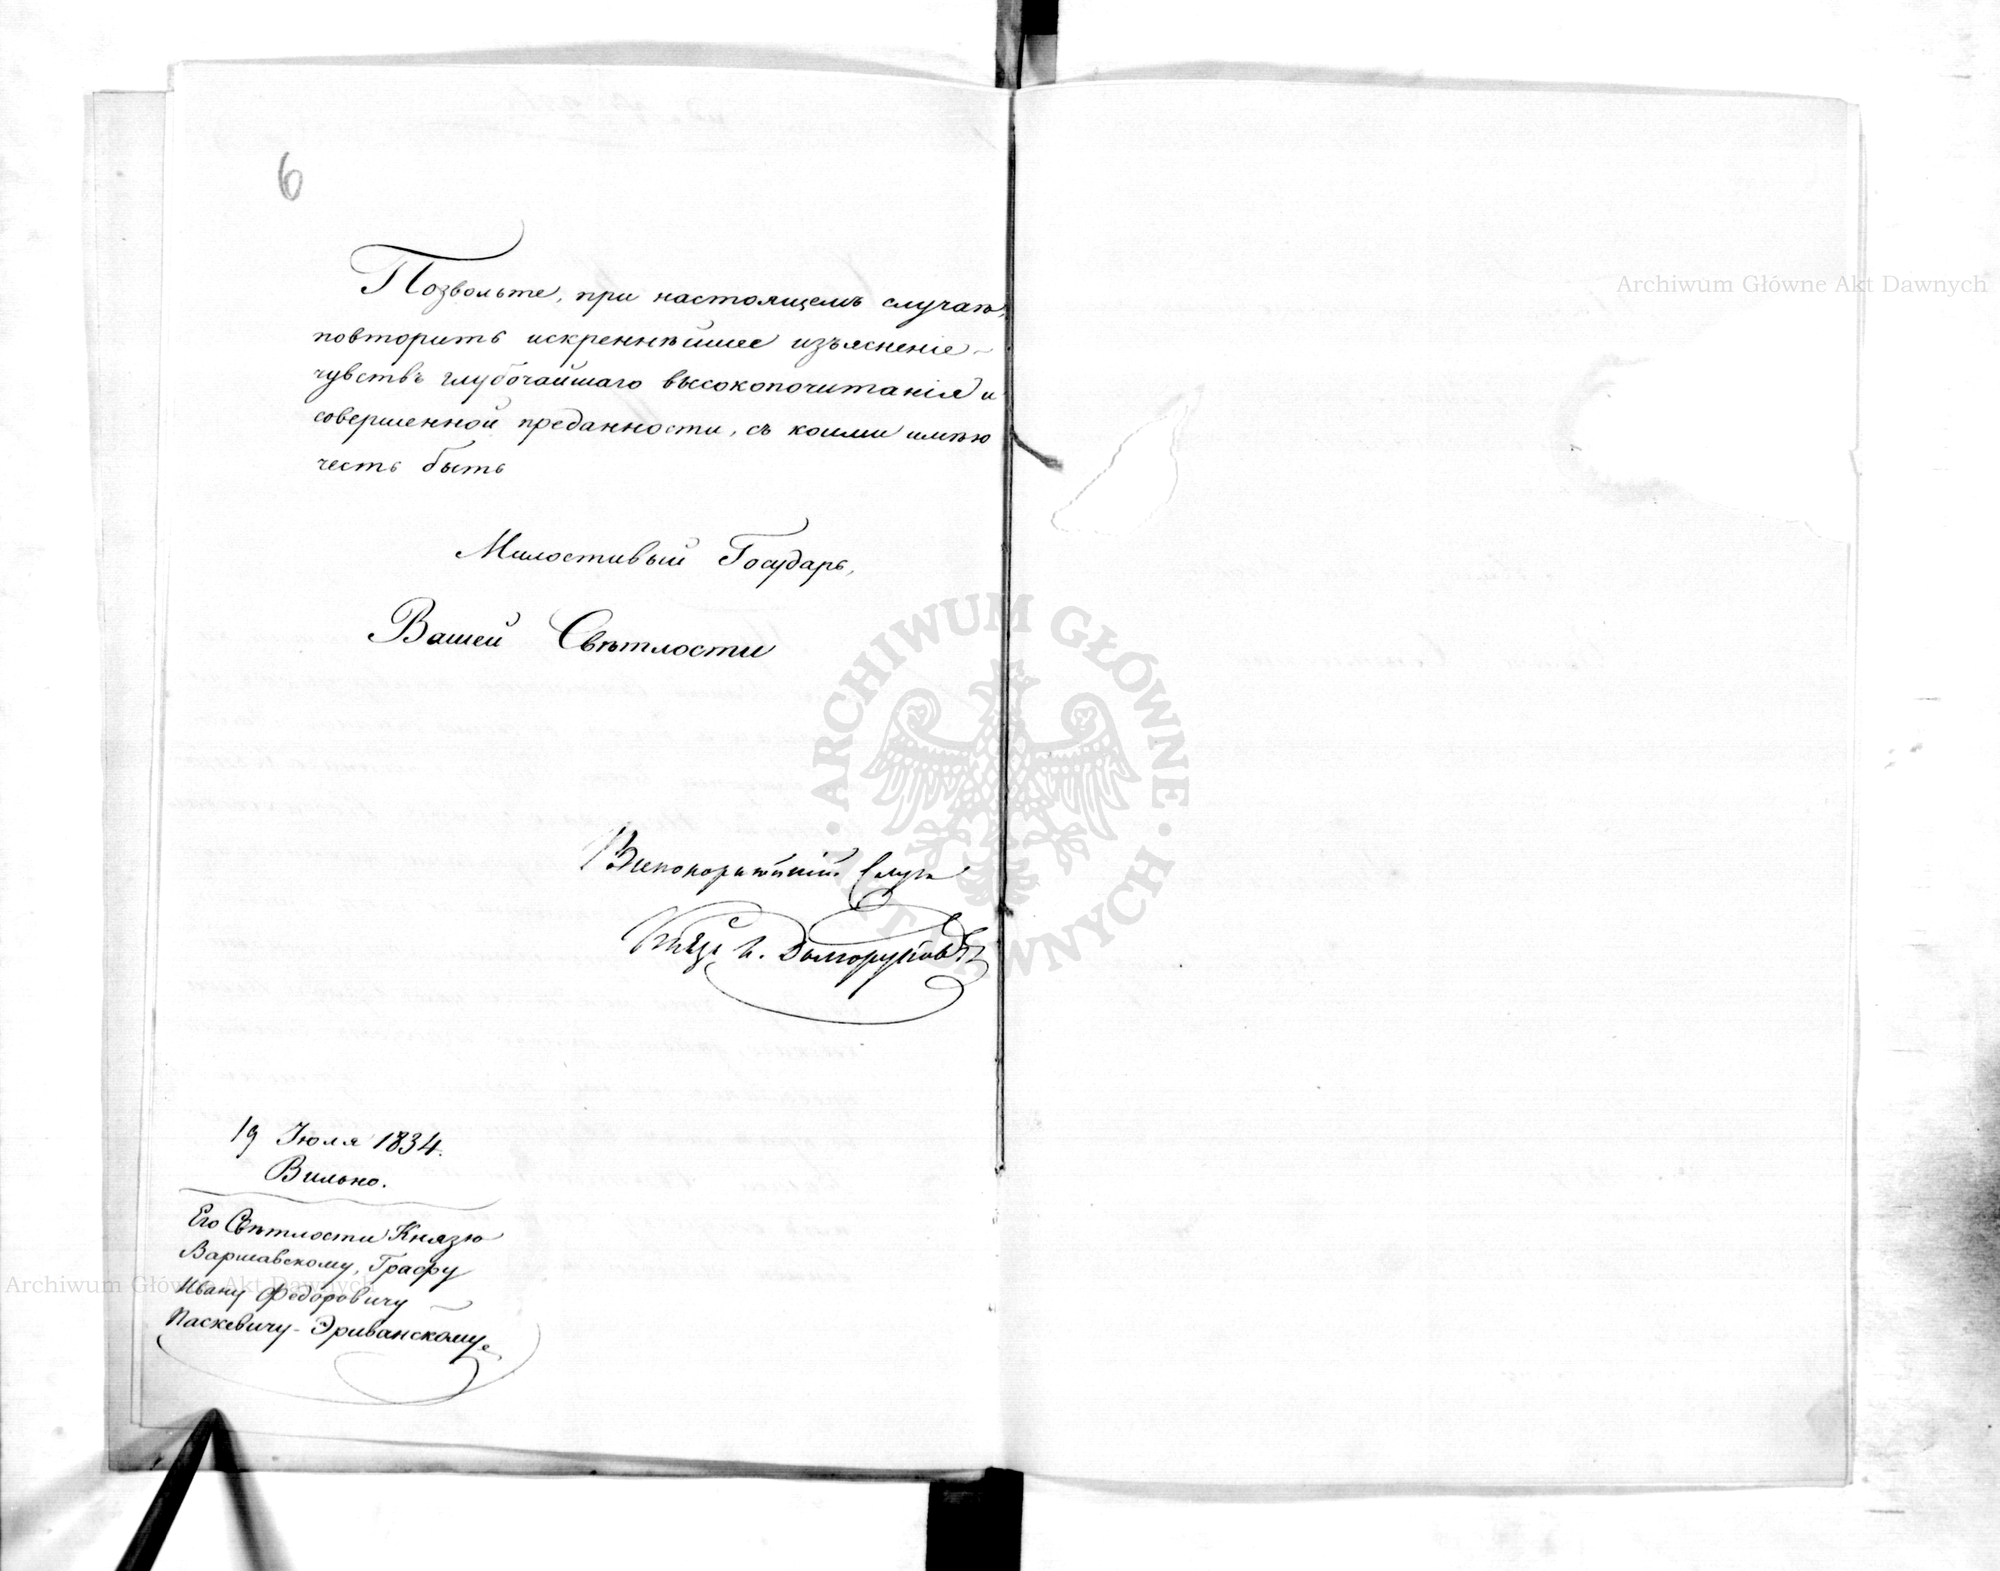 6
Позвольте, при настоящемъ случаѣ,
повторить искреннѣйшее изъясненіе
чувствъ глубочайшаго высокопочитанія и
совершенной преданности, съ коими имѣю
честь быть
Милостивый Государь,
Вашей Свѣтлости
Всепокорнѣйшій Слуга
Князь Н. Долгоруковъ
19 Іюля 1834.
Вильно.
Его Свѣтлости Князю
Варшавскому, Графу
Ивану Федоровичу
Паскевичу-Эриванскому
Archiwum Główne Akt Dawnych
Archiwum Główne Akt Dawnych
ARCHIWUM GŁÓWNE AKT DAWNYCH